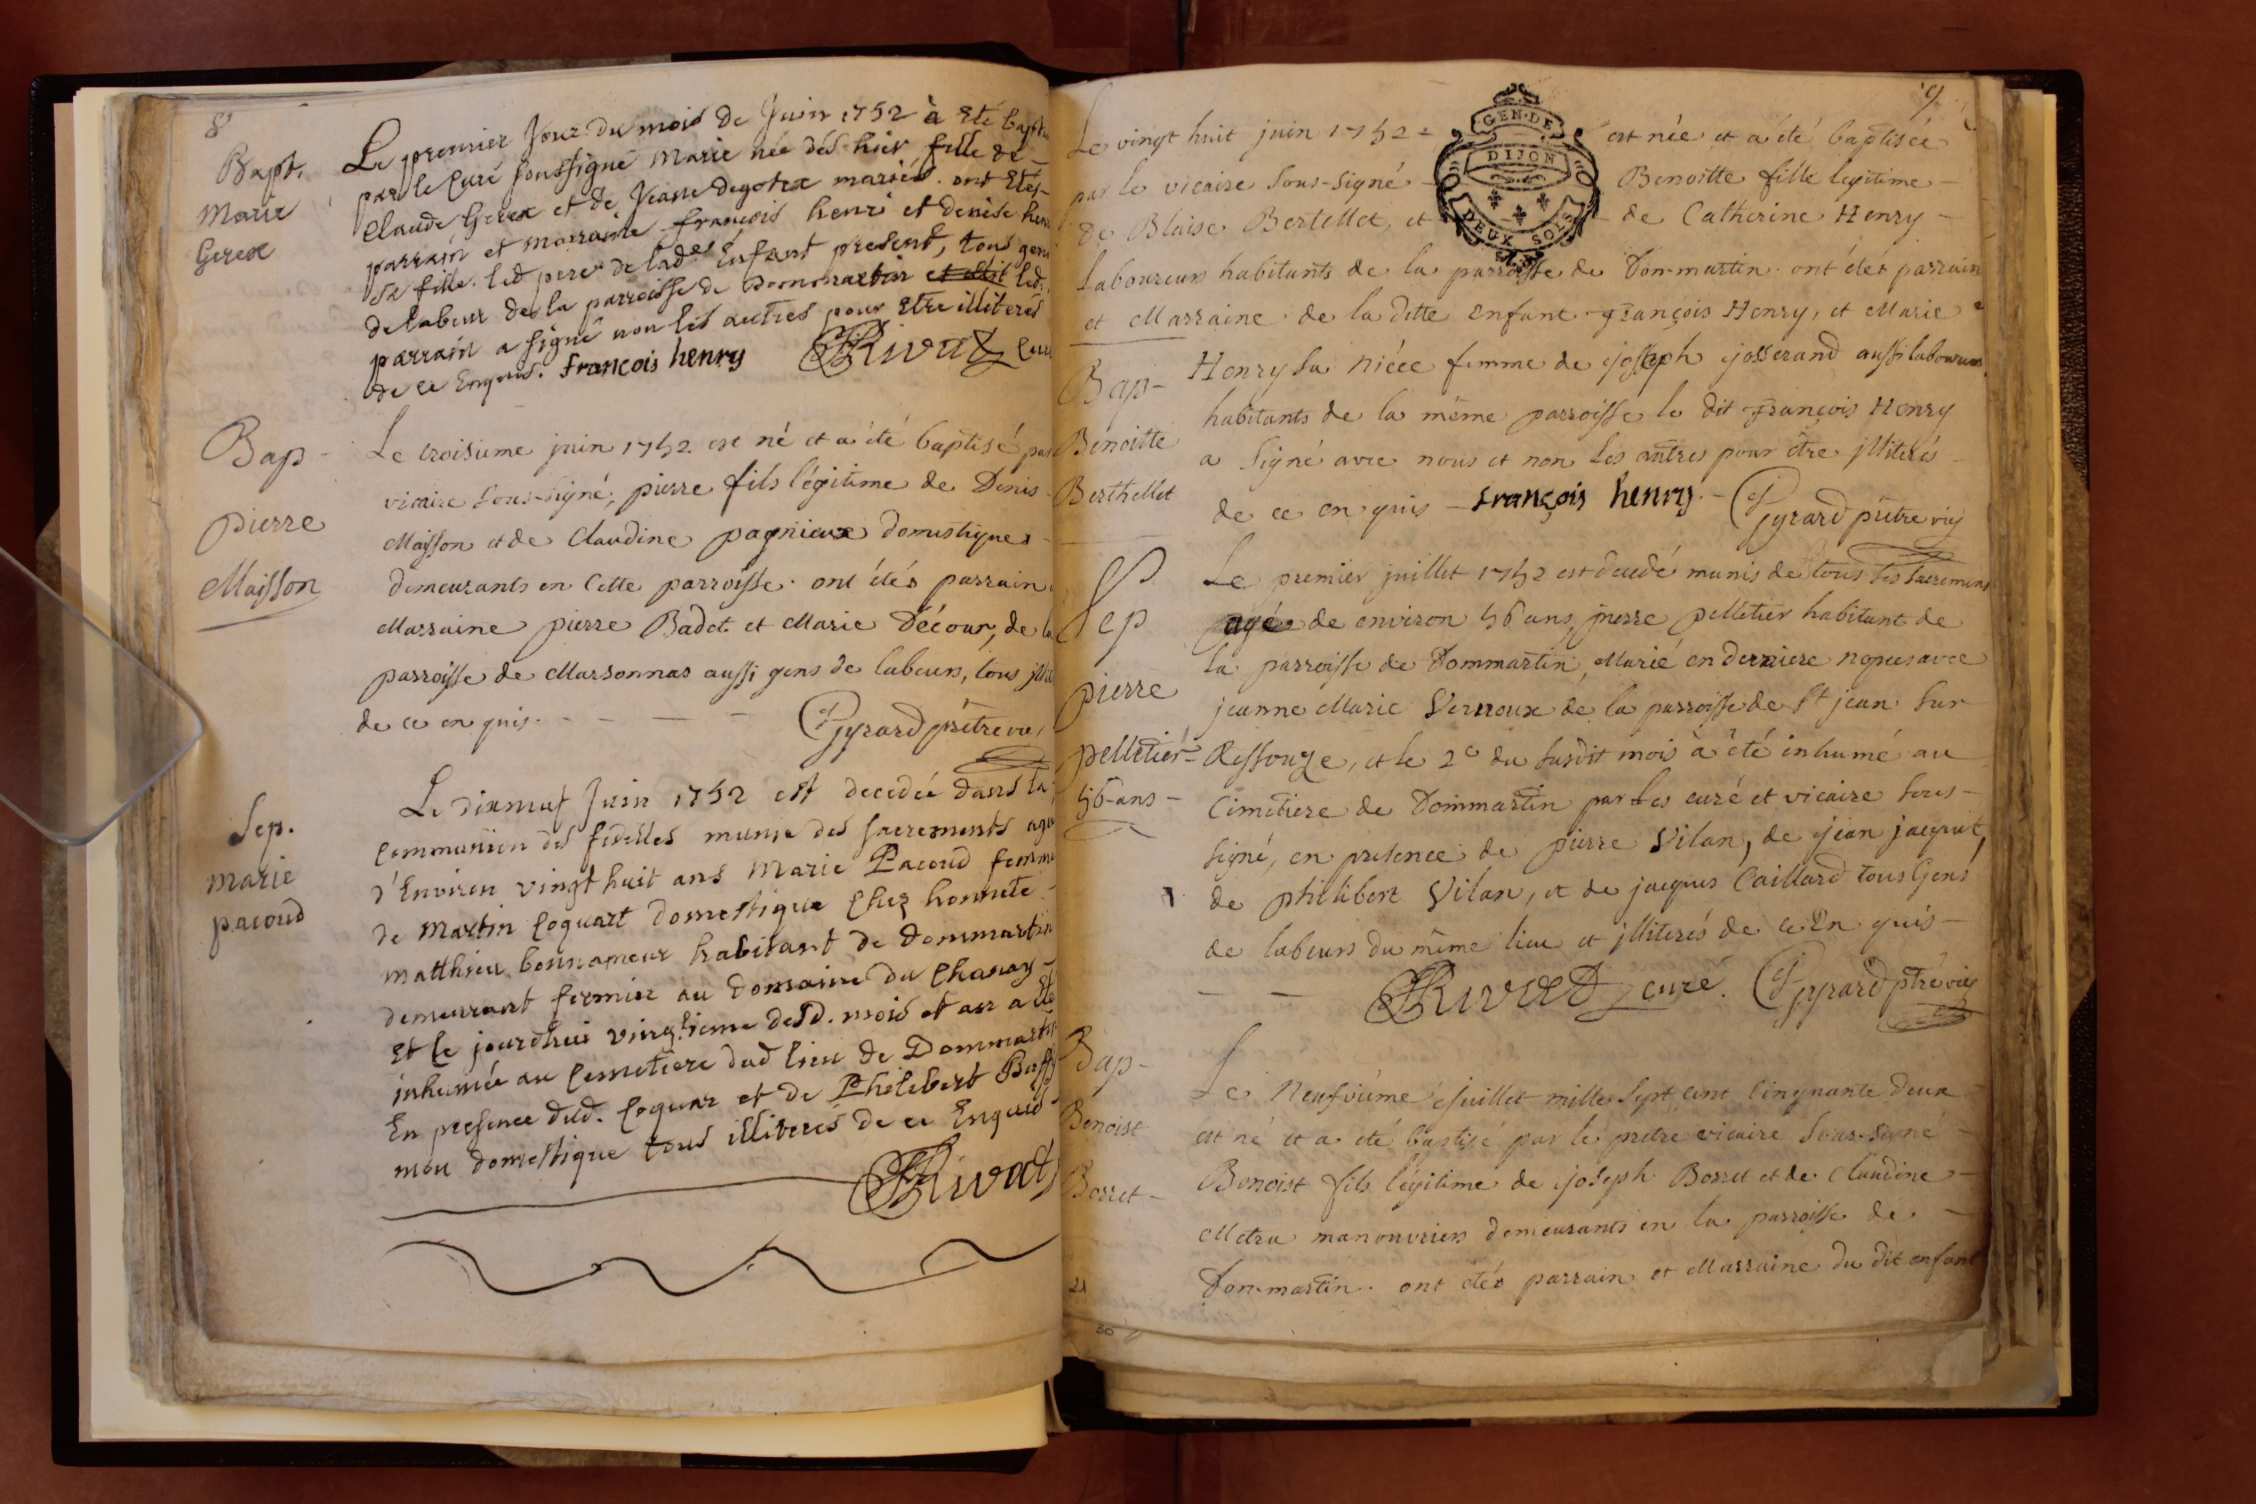 8
Bapt.
Marie
Gerex
Le premier Jour du mois de Juin 1752 à Eté bapti
par le Curé soussigné Marie née dés hier fille de
Claude Gerex et de Jeane degotex mariés. ont Etes
parrain et marraine françois henri et denise hen
sa fille. led pere de lad.e Enfant present, tous gens
de labeur de la parroisse de Dommartin et led.
parrain a signé non les autres pour Etre illiterés
de ce Enquis. françois henry Rivat Curé
Bap
pierre
Maisson
Le troisieme juin 1752 est né et a été baptisé par
vicaire sous-signé, pierre fils légitime de Denis
Maisson et de Claudine pagnieux domestiques
demeurants en Cette parroisse. ont étés parrain
Marraine pierre Badet et Marie Décour, de la
parroisse de Marsonnas aussi gens de labeurs, tous illi
de ce en quis. Gyrard prêtre vic
Sep.
marie
pacoud
Le dixneuf Juin 1752 est decedée dans la
Communion des fidelles munie des sacrements agée
d'Environ vingt huit ans Marie Pacoud femme
de Martin Coquart domestique Chez honnete
matthieu bonnamour habitant de dommartin
demeurant fermier au domaine du Chanay
et Ce jourdhui vingtieme desd. mois et an a Eté
inhumée au Cemetiere dud lieu de Dommartin
En presence dud. Coquar et de Philebert Buffy
mon domestique tous illiterés de ce Enquis
Rivat
9
GEN. DE
DIJON
DEUX SOLS
Le vingt huit juin 1752 est née et a été baptisée
par le vicaire sous-signé Benoitte fille legitime
de Blaise Bertellet, et de Catherine Henry
Laboureurs habitants de la parroisse de Dommartin. ont étés parrain
et Marraine de la ditte enfant françois Henry, et Marie
Bap
Benoitte
Berthellet
Henry sa niéce femme de joseph josserand aussi laboureurs
habitants de la même parroisse le dit françois Henry
a signé avec nous et non les autres pour être illiterés
de ce en quis françois henry. Gyrard prêtre vic
Sep
pierre
pelletier
56 ans
Le premier juillet 1752 est decedé munis de tous les sacremens
agé de environ 56 ans, pierre pelletier habitant de
la parroisse de Dommartin, Marié en derniere nopces avec
jeanne Marie Vernoux de la parroisse de St jean sur
Ressouze, et le 2e du susdit mois à été inhumé au
Cimetiere de Dommartin par les curé et vicaire sous-
signé, en presence de pierre Vilan, de jean jacquet,
de philibert Vilan, et de jacques Caillard tous Gens
de labeurs du même lieu et illiterés de ce En quis
Rivat curé. Gyrard ptre vic
Bap
Benoist
Borret
Le Neufviéme juillet mille sept cent Cinquante deux
est né et a été baptisé par le prêtre vicaire sous-signé
Benoist fils légitime de joseph Borret et de Claudine
Metra manouvriers demeurants en la parroisse de
Dommartin. ont étés parrain et Marraine du dit enfant
21